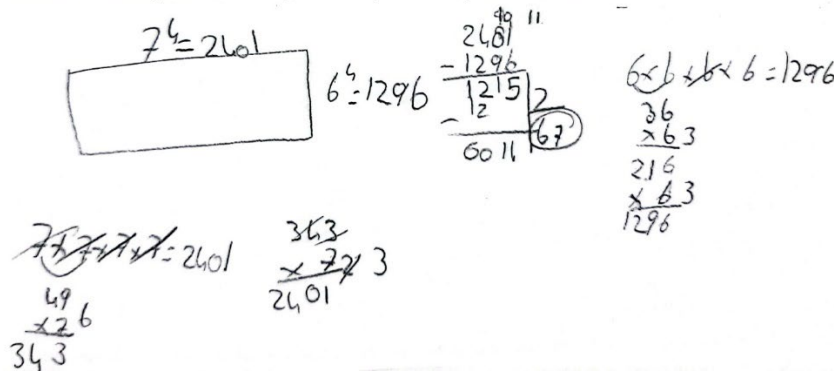 7⁴=2401
6⁴=1296
2401
- 1296
1215 | 2
12
-
0011
67
6×6×6×6=1296
36
×6 3
216
× 6 3
1296
7×7×7×7=2401
49
×7 6
343
343
× 7 3
2401